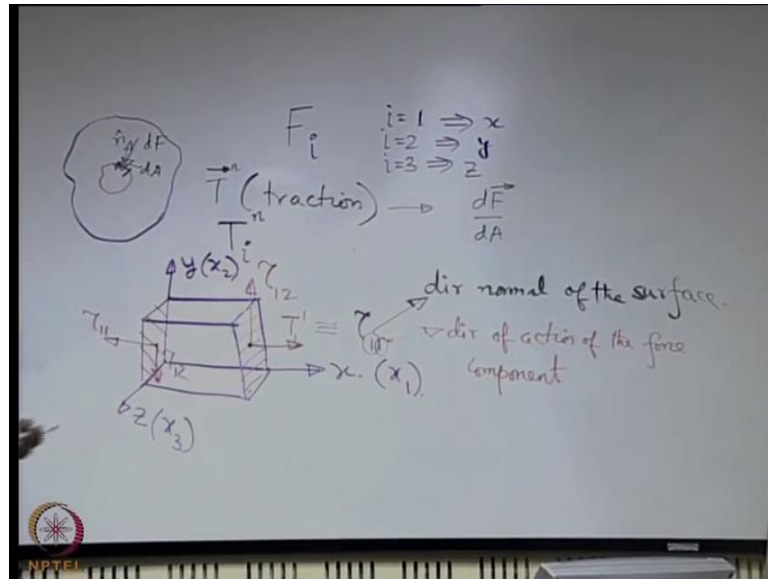 n̂ dF
dA
F_i
i=1 ⇒ x
i=2 ⇒ y
i=3 ⇒ z
T⃗^n (traction) → dF⃗/dA
T_i^n
y(x_2)
τ_12
dir normal of the surface.
τ_11
T_1^1 ≡ τ_11
dir of action of the force
component
τ_12
x. (x_1)
z(x_3)
NPTEL